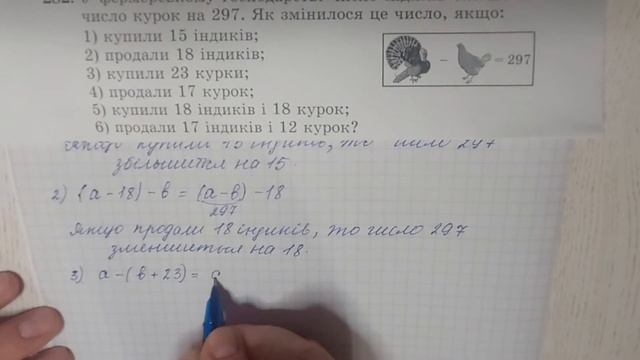 число курок на 297. Як змінилося це число, якщо:
1) купили 15 індиків;
2) продали 18 індиків;
3) купили 23 курки;
4) продали 17 курок;
5) купили 18 індиків і 18 курок;
6) продали 17 індиків і 12 курок?
− = 297
збільшится на 15.
2) (a-18)-b = (a-b)-18
297
Якщо продали 18 індиків, то число 297
зменшиться на 18.
3) a-(b+23) =